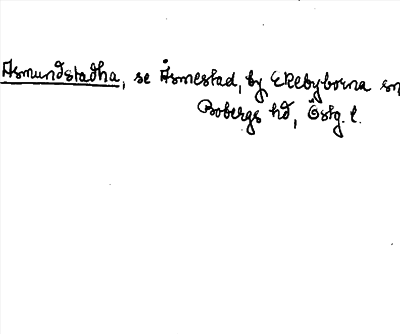 Asmundstadha, se Åsmestad, by Ekebyborna sn
Bobergs hd, Östg. l.